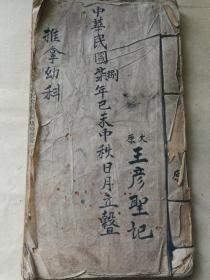 原王彦聖記
中華民國捌年己未中秋日月立聲
推拿幼科